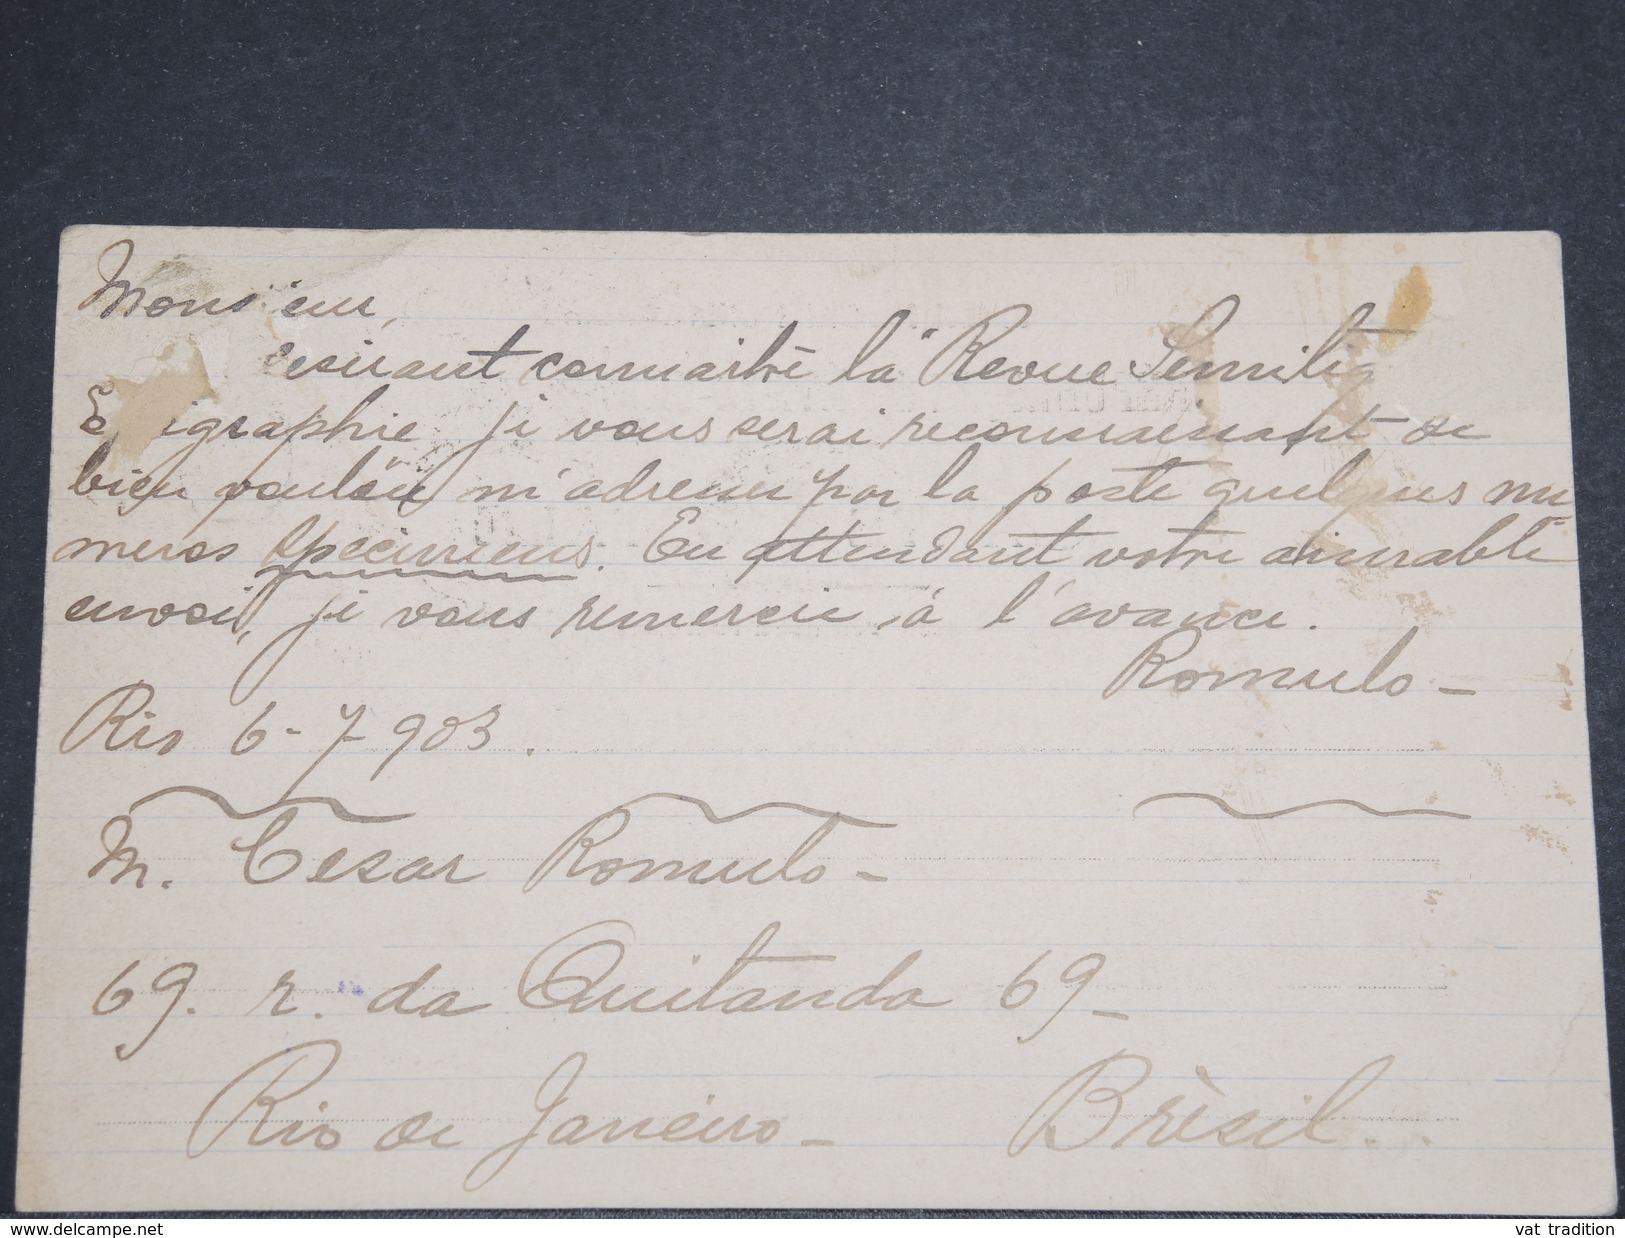 Monsieur,
esirant connaitre la "Revue Semitiq
E igraphie je vous serai reconnaissant de
bien vouloir m'adresser par la poste quelques nu
meros specimens. En attendant votre aimable
envoi, je vous remercie à l'avance.
Romulo -
Rio 6-7-903.
M. Cesar Romulo -
69. r. da Quitanda 69 -
Rio de Janeiro - Brèsil.
www.delcampe.net
vat tradition